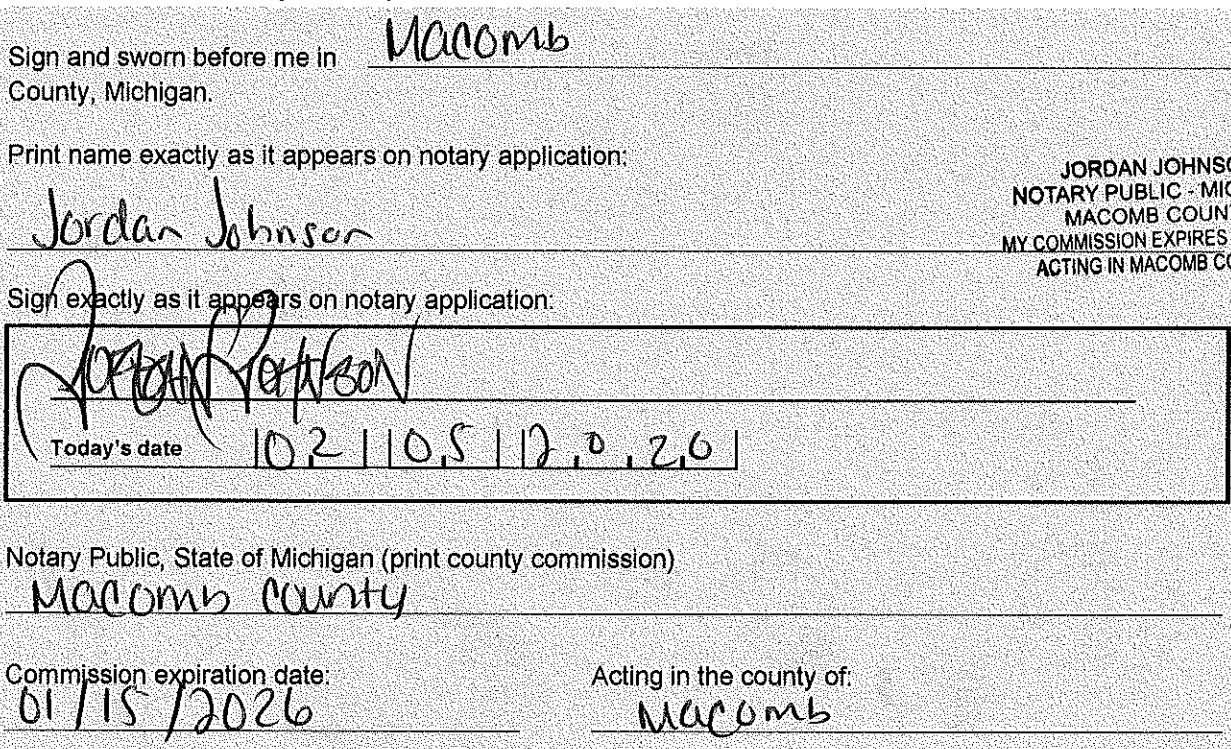 Sign and sworn before me in Macomb
County, Michigan.
Print name exactly as it appears on notary application:
Jordan Johnson
JORDAN JOHNSO
NOTARY PUBLIC - MIC
MACOMB COUN
MY COMMISSION EXPIRES
ACTING IN MACOMB CO
Sign exactly as it appears on notary application:
Jordan Johnson
Today's date 02 05 2020
Notary Public, State of Michigan (print county commission)
Macomb County
Commission expiration date: Acting in the county of:
01/15/2026 Macomb